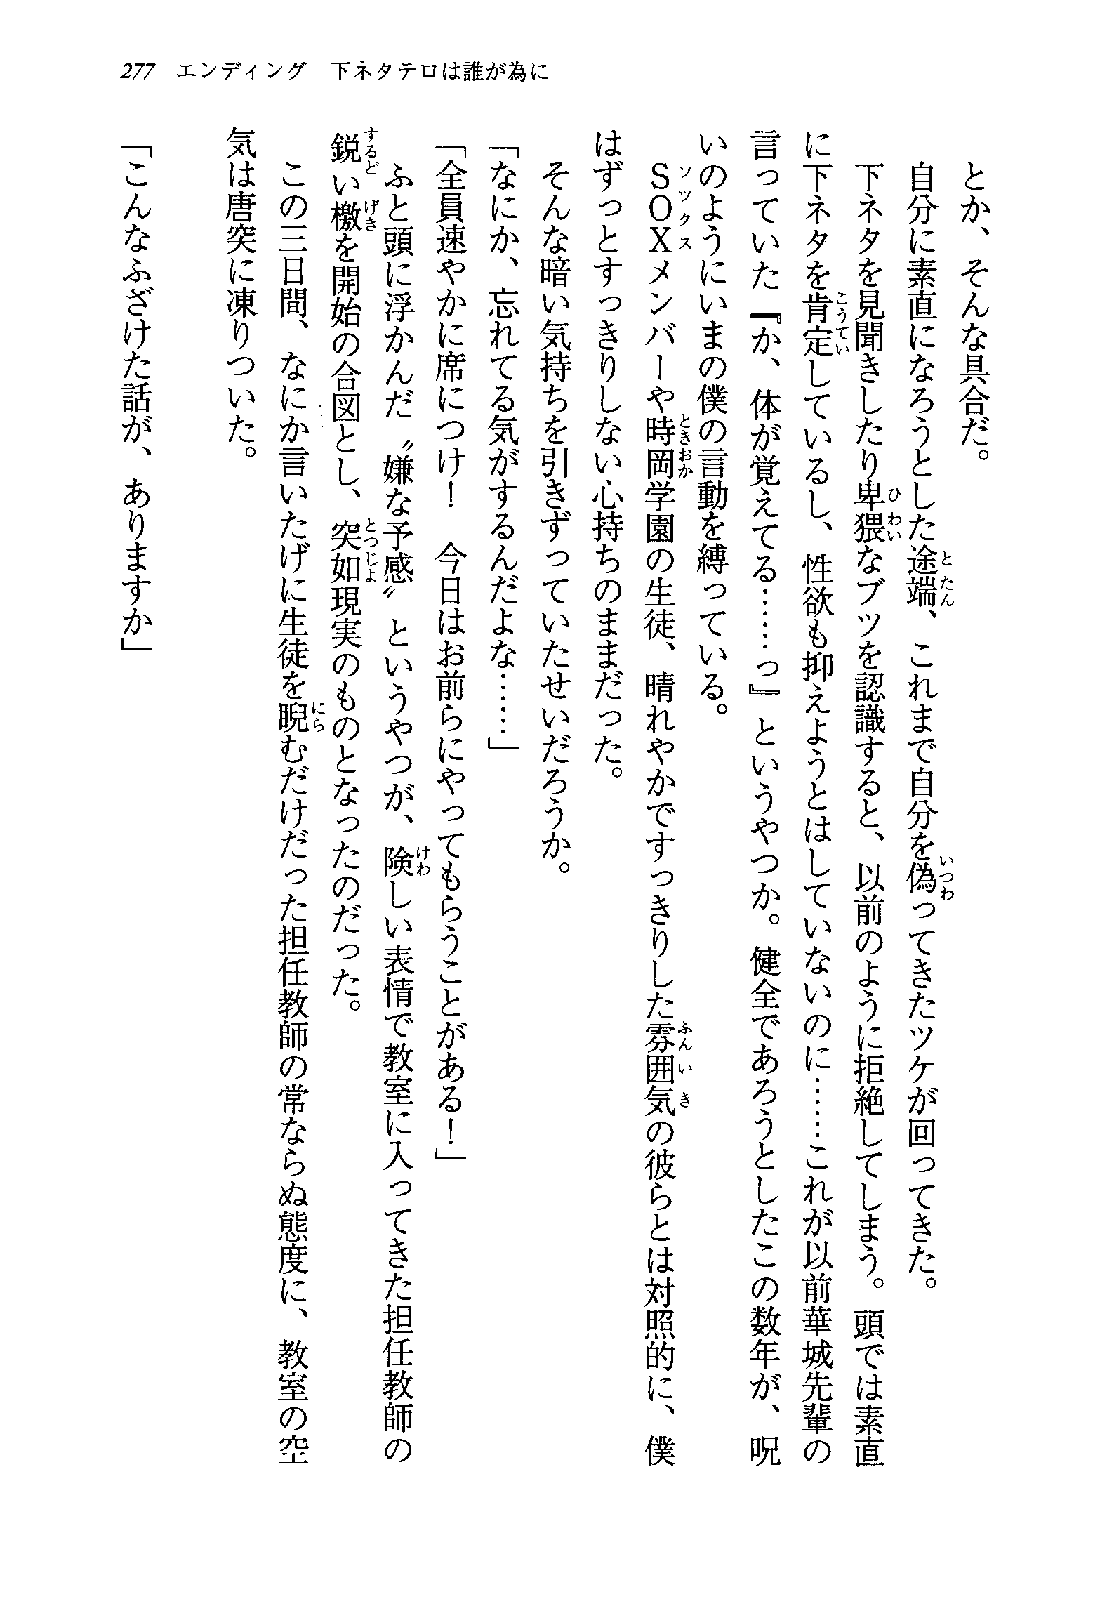 277 エンディング 下ネタテロは誰が為に
とか、そんな具合だ。
自分に素直になろうとした途端、これまで自分を偽ってきたツケが回ってきた。
下ネタを見聞きしたり卑猥なブツを認識すると、以前のように拒絶してしまう。頭では素直
に下ネタを肯定しているし、性欲も抑えようとはしていないのに……これが以前華城先輩の
言っていた『か、体が覚えてる……っ』というやつか。健全であろうとしたこの数年が、呪
いのようにいまの僕の言動を縛っている。
ＳＯＸメンバーや時岡学園の生徒、晴れやかですっきりした雰囲気の彼らとは対照的に、僕
はずっとすっきりしない心持ちのままだった。
そんな暗い気持ちを引きずっていたせいだろうか。
「なにか、忘れてる気がするんだよな……」
「全員速やかに席につけ！　今日はお前らにやってもらうことがある！」
ふと頭に浮かんだ〝嫌な予感〟というやつが、険しい表情で教室に入ってきた担任教師の
鋭い檄を開始の合図とし、突如現実のものとなったのだった。
この三日間、なにか言いたげに生徒を睨むだけだった担任教師の常ならぬ態度に、教室の空
気は唐突に凍りついた。
「こんなふざけた話が、ありますか」